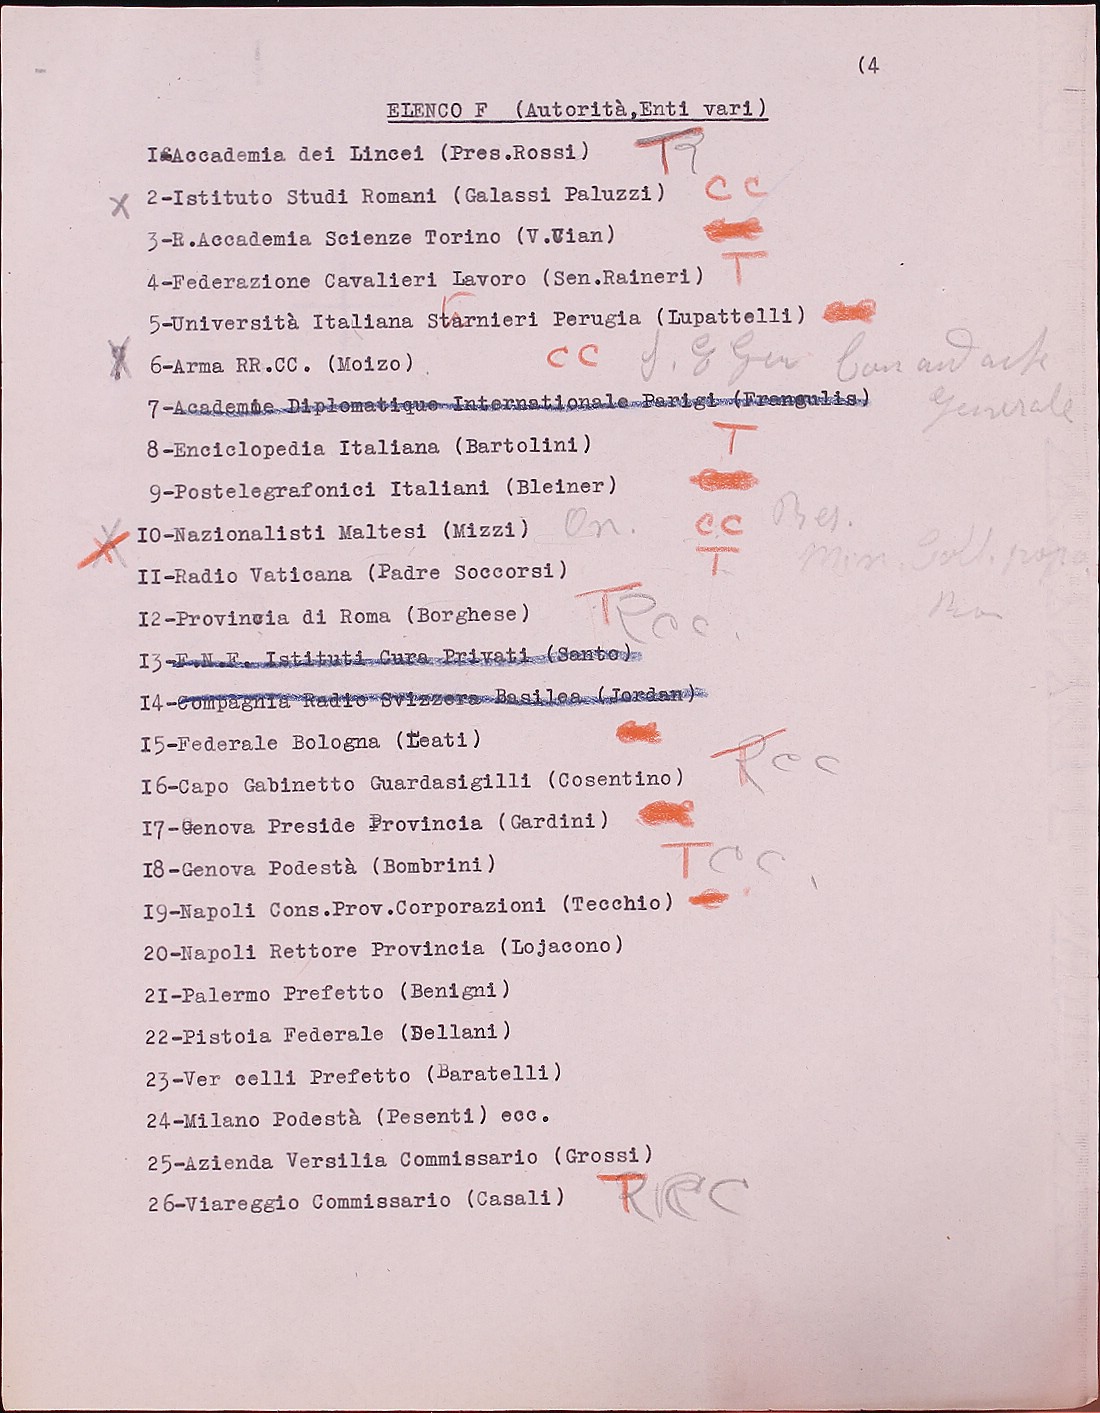 (4
ELENCO F (Autorità,Enti vari)
I-Accademia dei Lincei (Pres.Rossi) T R
X 2-Istituto Studi Romani (Galassi Paluzzi) C C
3-R.Accademia Scienze Torino (V.Cian)
4-Federazione Cavalieri Lavoro (Sen.Raineri) T
5-Università Italiana Starnieri Perugia (Lupattelli)
X 6-Arma RR.CC. (Moizo) C C Comandante
Generale
7-Academie Diplomatique Internationale Parigi (Frangulis)
8-Enciclopedia Italiana (Bartolini) T
9-Postelegrafonici Italiani (Bleiner)
X IO-Nazionalisti Maltesi (Mizzi) On. C C Pres.
II-Radio Vaticana (Padre Soccorsi) T Min.
I2-Provincia di Roma (Borghese) T R c c.
I3-F.N.F. Istituti Cura Privati (Santo)
I4-Compagnia Radio Svizzera Basilea (Jordan)
I5-Federale Bologna (Leati)
I6-Capo Gabinetto Guardasigilli (Cosentino) T R c c
I7-Genova Preside Provincia (Gardini)
I8-Genova Podestà (Bombrini) T C C
I9-Napoli Cons.Prov.Corporazioni (Tecchio)
20-Napoli Rettore Provincia (Lojacono)
2I-Palermo Prefetto (Benigni)
22-Pistoia Federale (Dellani)
23-Ver celli Prefetto (Baratelli)
24-Milano Podestà (Pesenti) ecc.
25-Azienda Versilia Commissario (Grossi)
26-Viareggio Commissario (Casali) T R C C